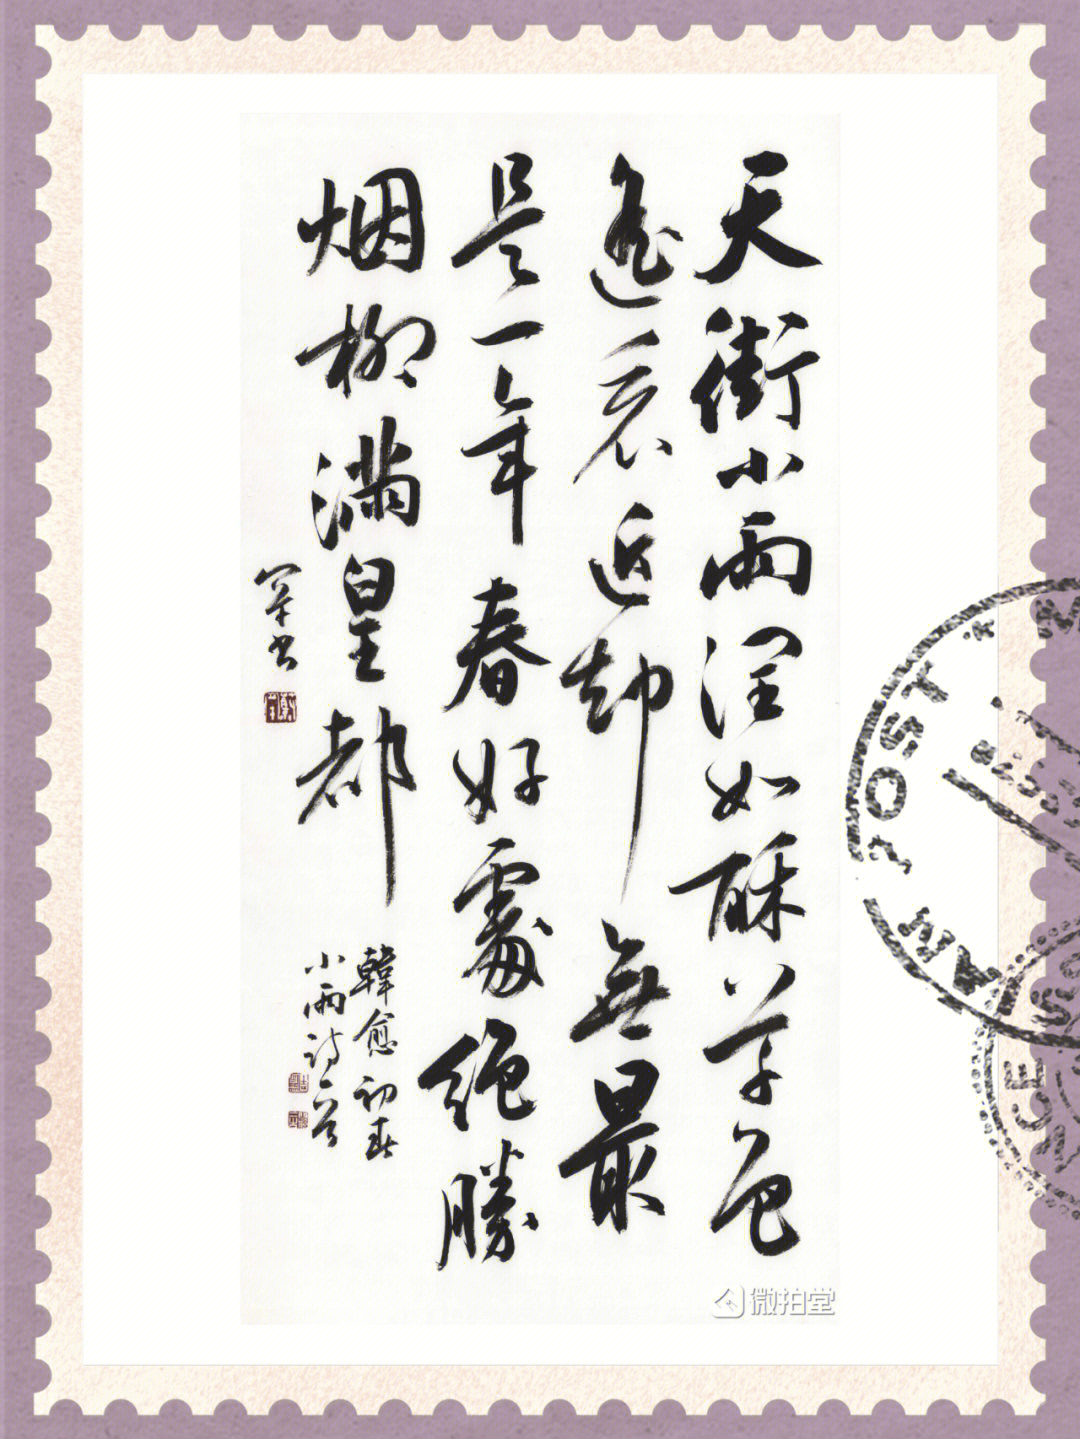 天街小雨润如酥草色
遥看近却無最
是一年春好處绝勝
烟柳满皇都
韓愈初春
小雨诗一首
书
POST
微拍堂